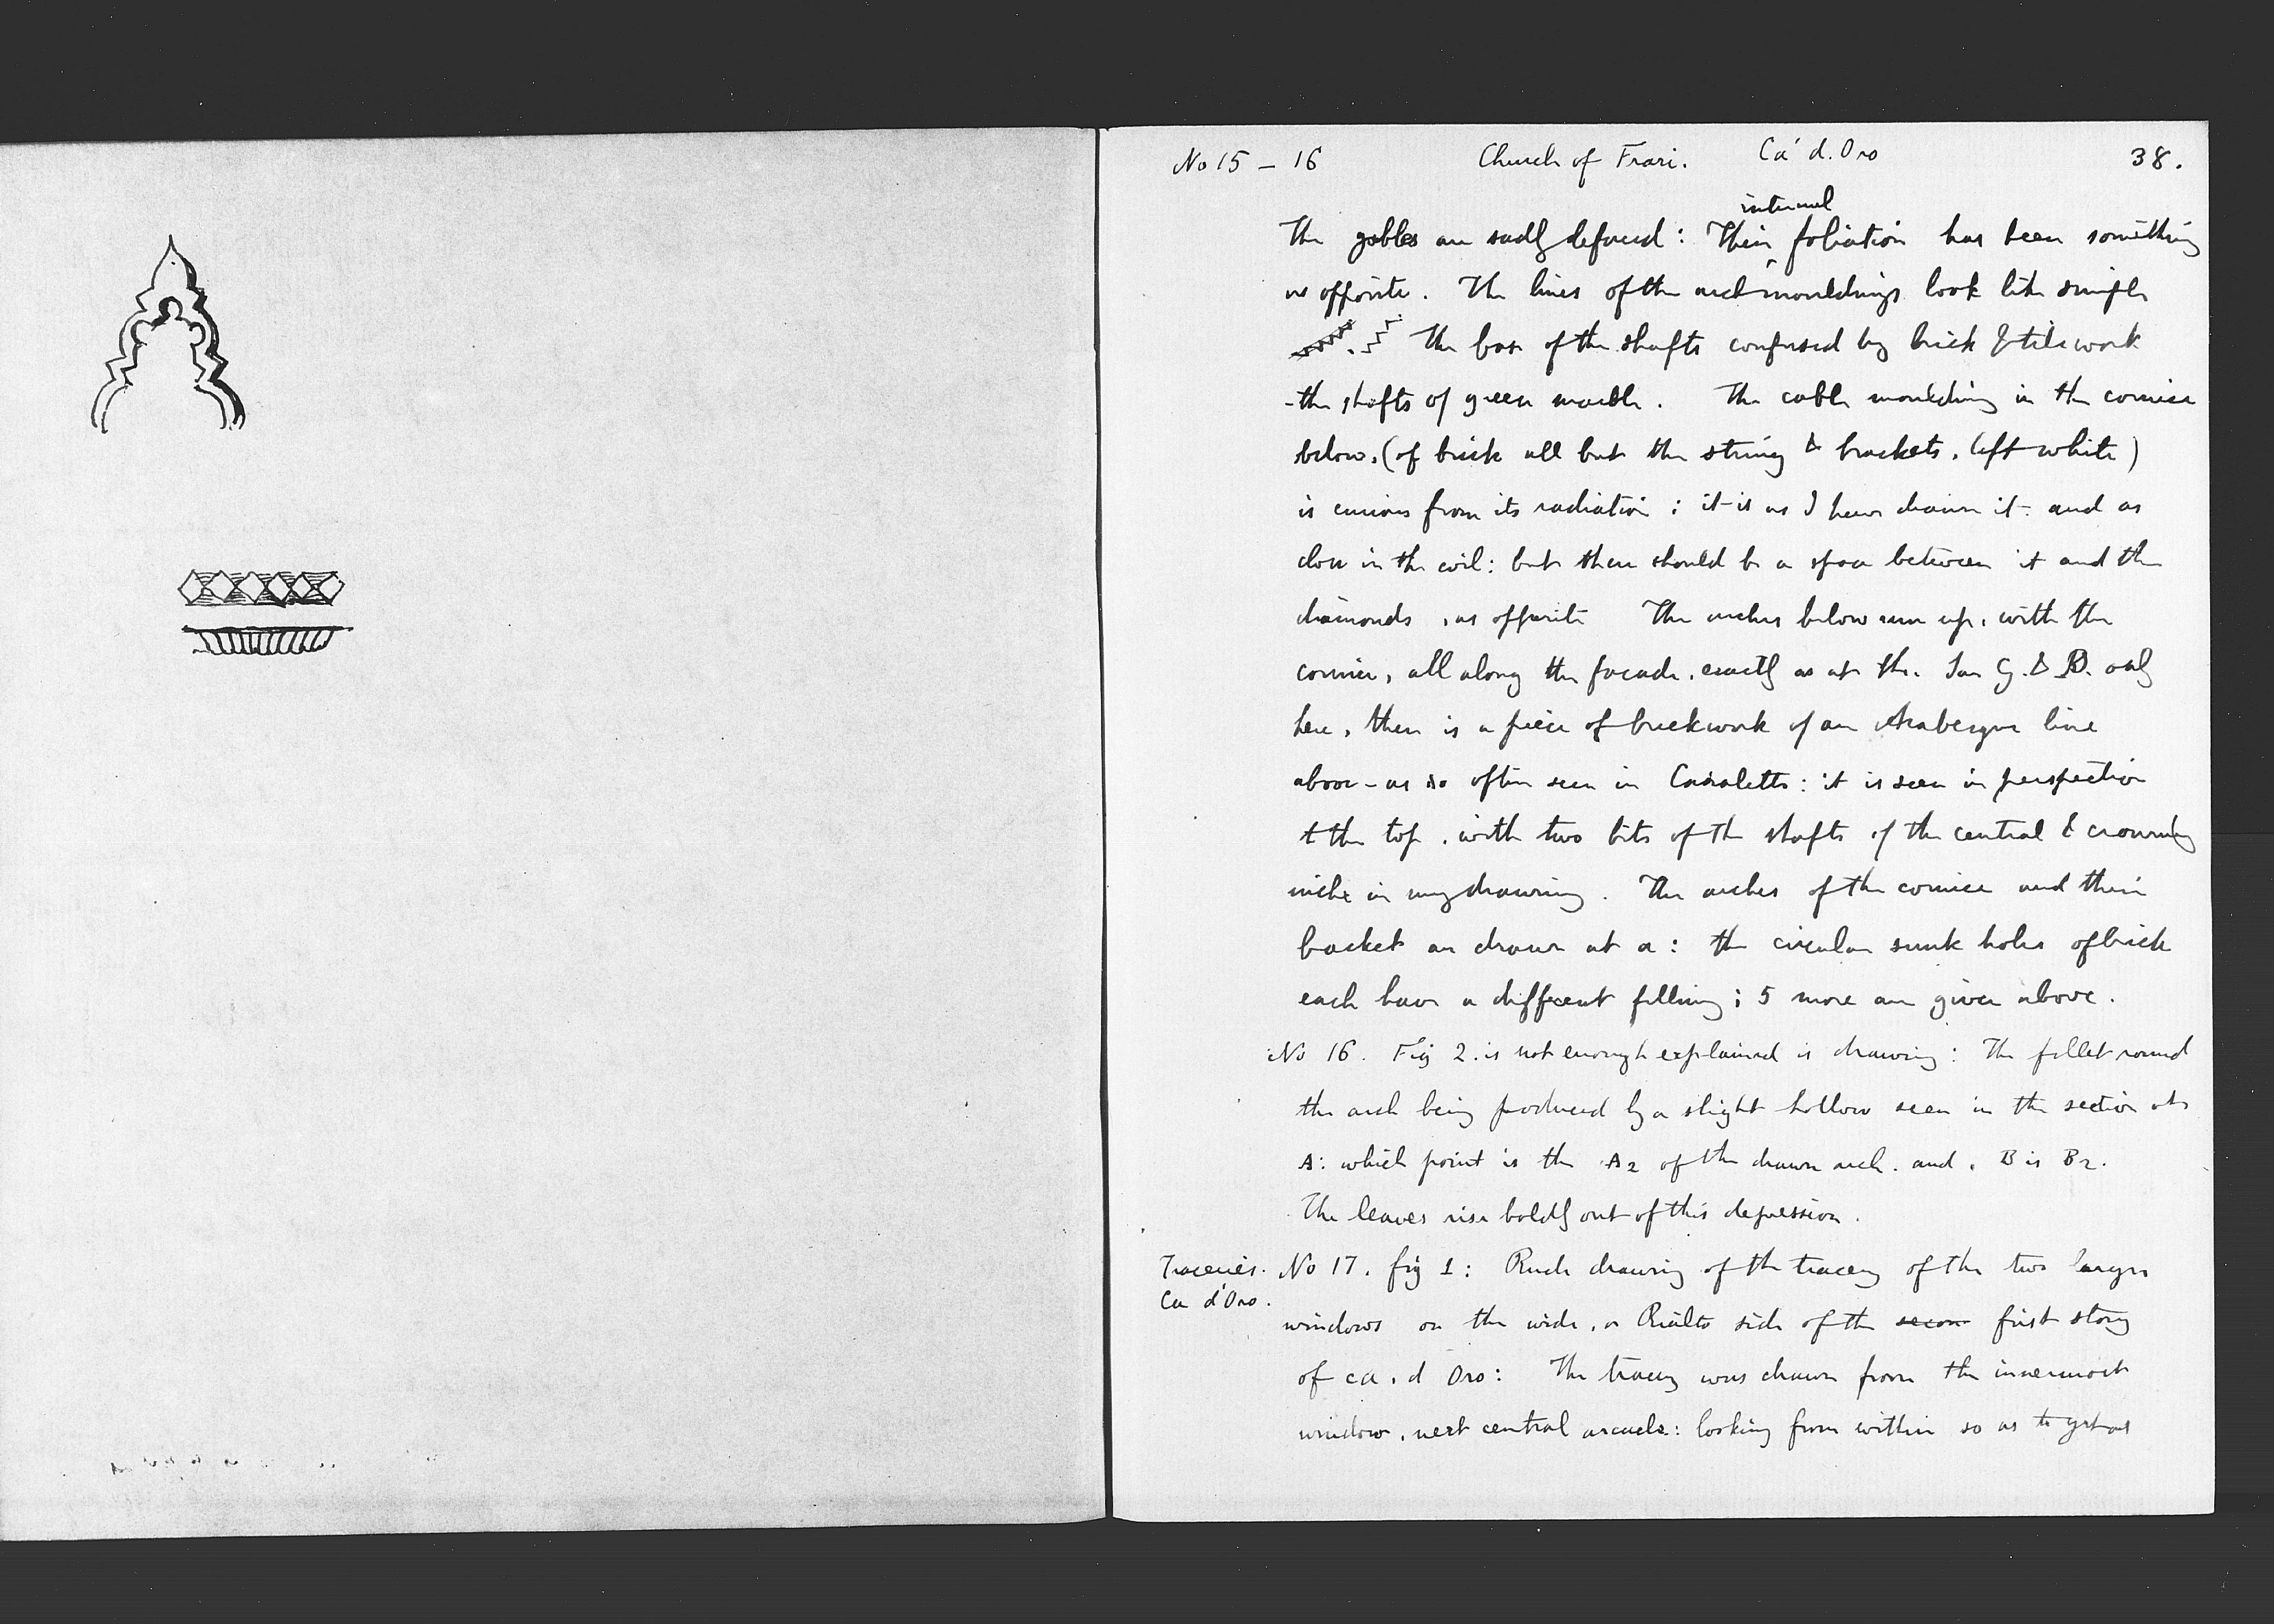 No 15 - 16 Church of Frari. Ca' d. Oro 38.
internal
The gables are sadly defaced: Their foliation has been something
as opposite. The lines of the arch mouldings look like simple
The base of the shafts confused by brick & tile work
- the shafts of green marble. The cable moulding in the cornice
below, (of brick all but the string & brackets, left white)
is curious from its radiation: it is as I have drawn it - and as
close in the coil: but there should be a space between it and the
diamonds, as opposite The arches below run up, with the
cornice, all along the facade, exactly as at the. San G. & P. only
here, there is a piece of brickwork of an Arabesque line
above - as so often seen in Canaletto: it is seen in perspective
t the top, with two bits of the shafts of the central & crowning
niche in my drawing. The arches of the cornice and their
bracket are drawn at a: the circular sunk holes of brick
each have a different filling; 5 more are given above.
No 16. Fig 2. is not enough explained is drawing: The fillet round
the arch being produced by a slight hollow seen in the section at
A: which point is the A2 of the drawn arch. and, B is B2.
The leaves rise boldly out of this depression.
Traceries. No 17. fig 1: Rude drawing of the tracery of the two larger
Ca d'Oro.
windows on the wide, or Rialto side of the secon first story
of ca. d Oro: The tracery was drawn from the innermost
window, next central arcade: looking from within so as to get at